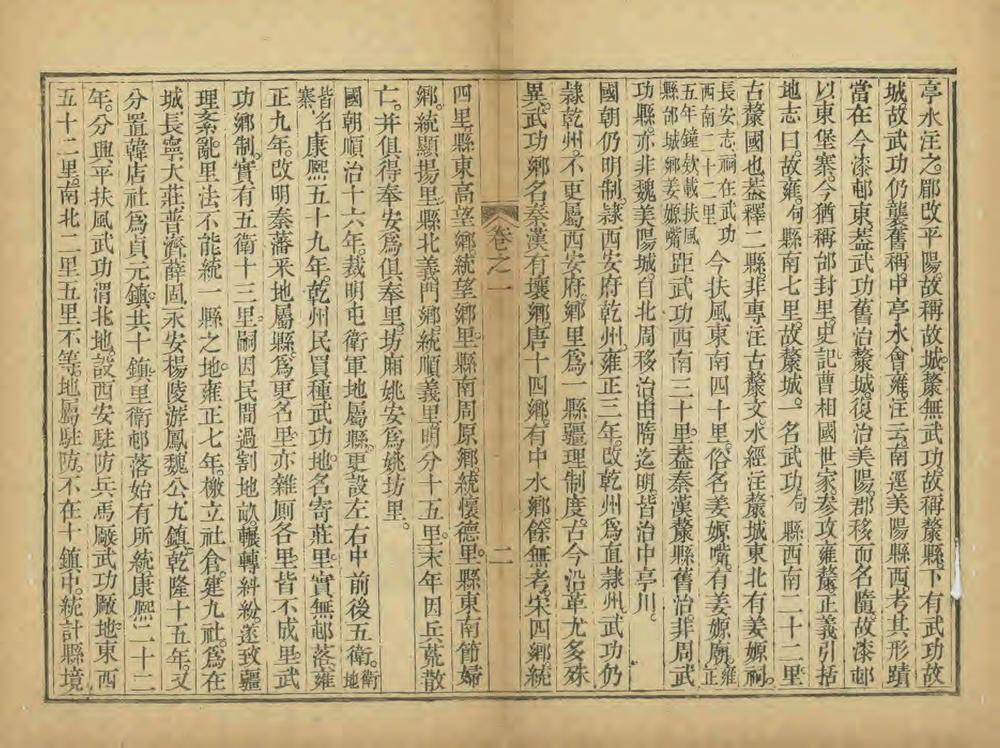 亭水注之。郿改平陽。故稱故城。斄無武功。故稱斄縣。下有武功故
城。故武功仍襲舊稱。中亭水會雍。注云。南逕美陽縣西。考其形蹟
當在今漆邨東。葢武功舊治斄城。復治美陽。郡移而名隨。故漆邨
以東堡寨。今猶稱邰封里。史記曹相國世家。參攻雍斄。正義引括
地志曰。故雍。句縣南七里。故斄城。一名武功。句縣西南二十二里
古斄國也。葢釋二縣。非專注古斄文。水經注斄城東北有姜嫄祠。
長安志。祠在武功西南二十二里今扶風東南四十里。俗名姜嫄嘴。有姜嫄廟。雍正
五年鐘欵載扶風縣邰城鄉姜嫄嘴距武功西南三十里。葢秦漢斄縣舊治。非周武
功縣。亦非魏美陽城。自北周移治。由隋迄明。皆治中亭川。
國朝仍明制。隸西安府乾州。雍正三年。改乾州爲直隸州。武功仍
隸乾州。不更屬西安府。鄉里爲一縣疆理制度。古今沿革尤多殊
異。武功鄉名。秦漢有壤鄉。唐十四鄉。有中水鄉。餘無考。宋四鄉。統
卷之一
二
四里。縣東高望鄉。統望鄉里。縣南周原鄉。統懷德里。縣東南節婦
鄉。統顯揚里。縣北義門鄉。統順義里。明分十五里。末年因兵荒散
亡。并俱得奉安爲俱奉里。坊廂姚安爲姚坊里。
國朝順治十六年。裁明屯衛軍地屬縣。更設左右中前後五衛。衛地
皆名寨康熙五十九年。乾州民買種武功地。名寄莊里。實無邨落。雍
正九年。改明秦藩來地屬縣。爲更名里。亦雜厠各里。皆不成里。武
功鄉制。實有五衛十三里。嗣因民間過割地畝。輾轉糾紛。遂致疆
理紊亂。里法不能統一縣之地。雍正七年。檄立社倉。建九社。爲在
城長寧大莊普濟薛固永安楊陵游鳳魏公九鎮。乾隆十五年。又
分置韓店社爲貞元鎮。共十鎮。里衛邨落始有所統。康熙二十二
年。分興平扶風武功渭北地。設西安駐防兵馬厰。武功厰地。東西
五十二里。南北二里五里不等。地屬駐防。不在十鎮中。統計縣境